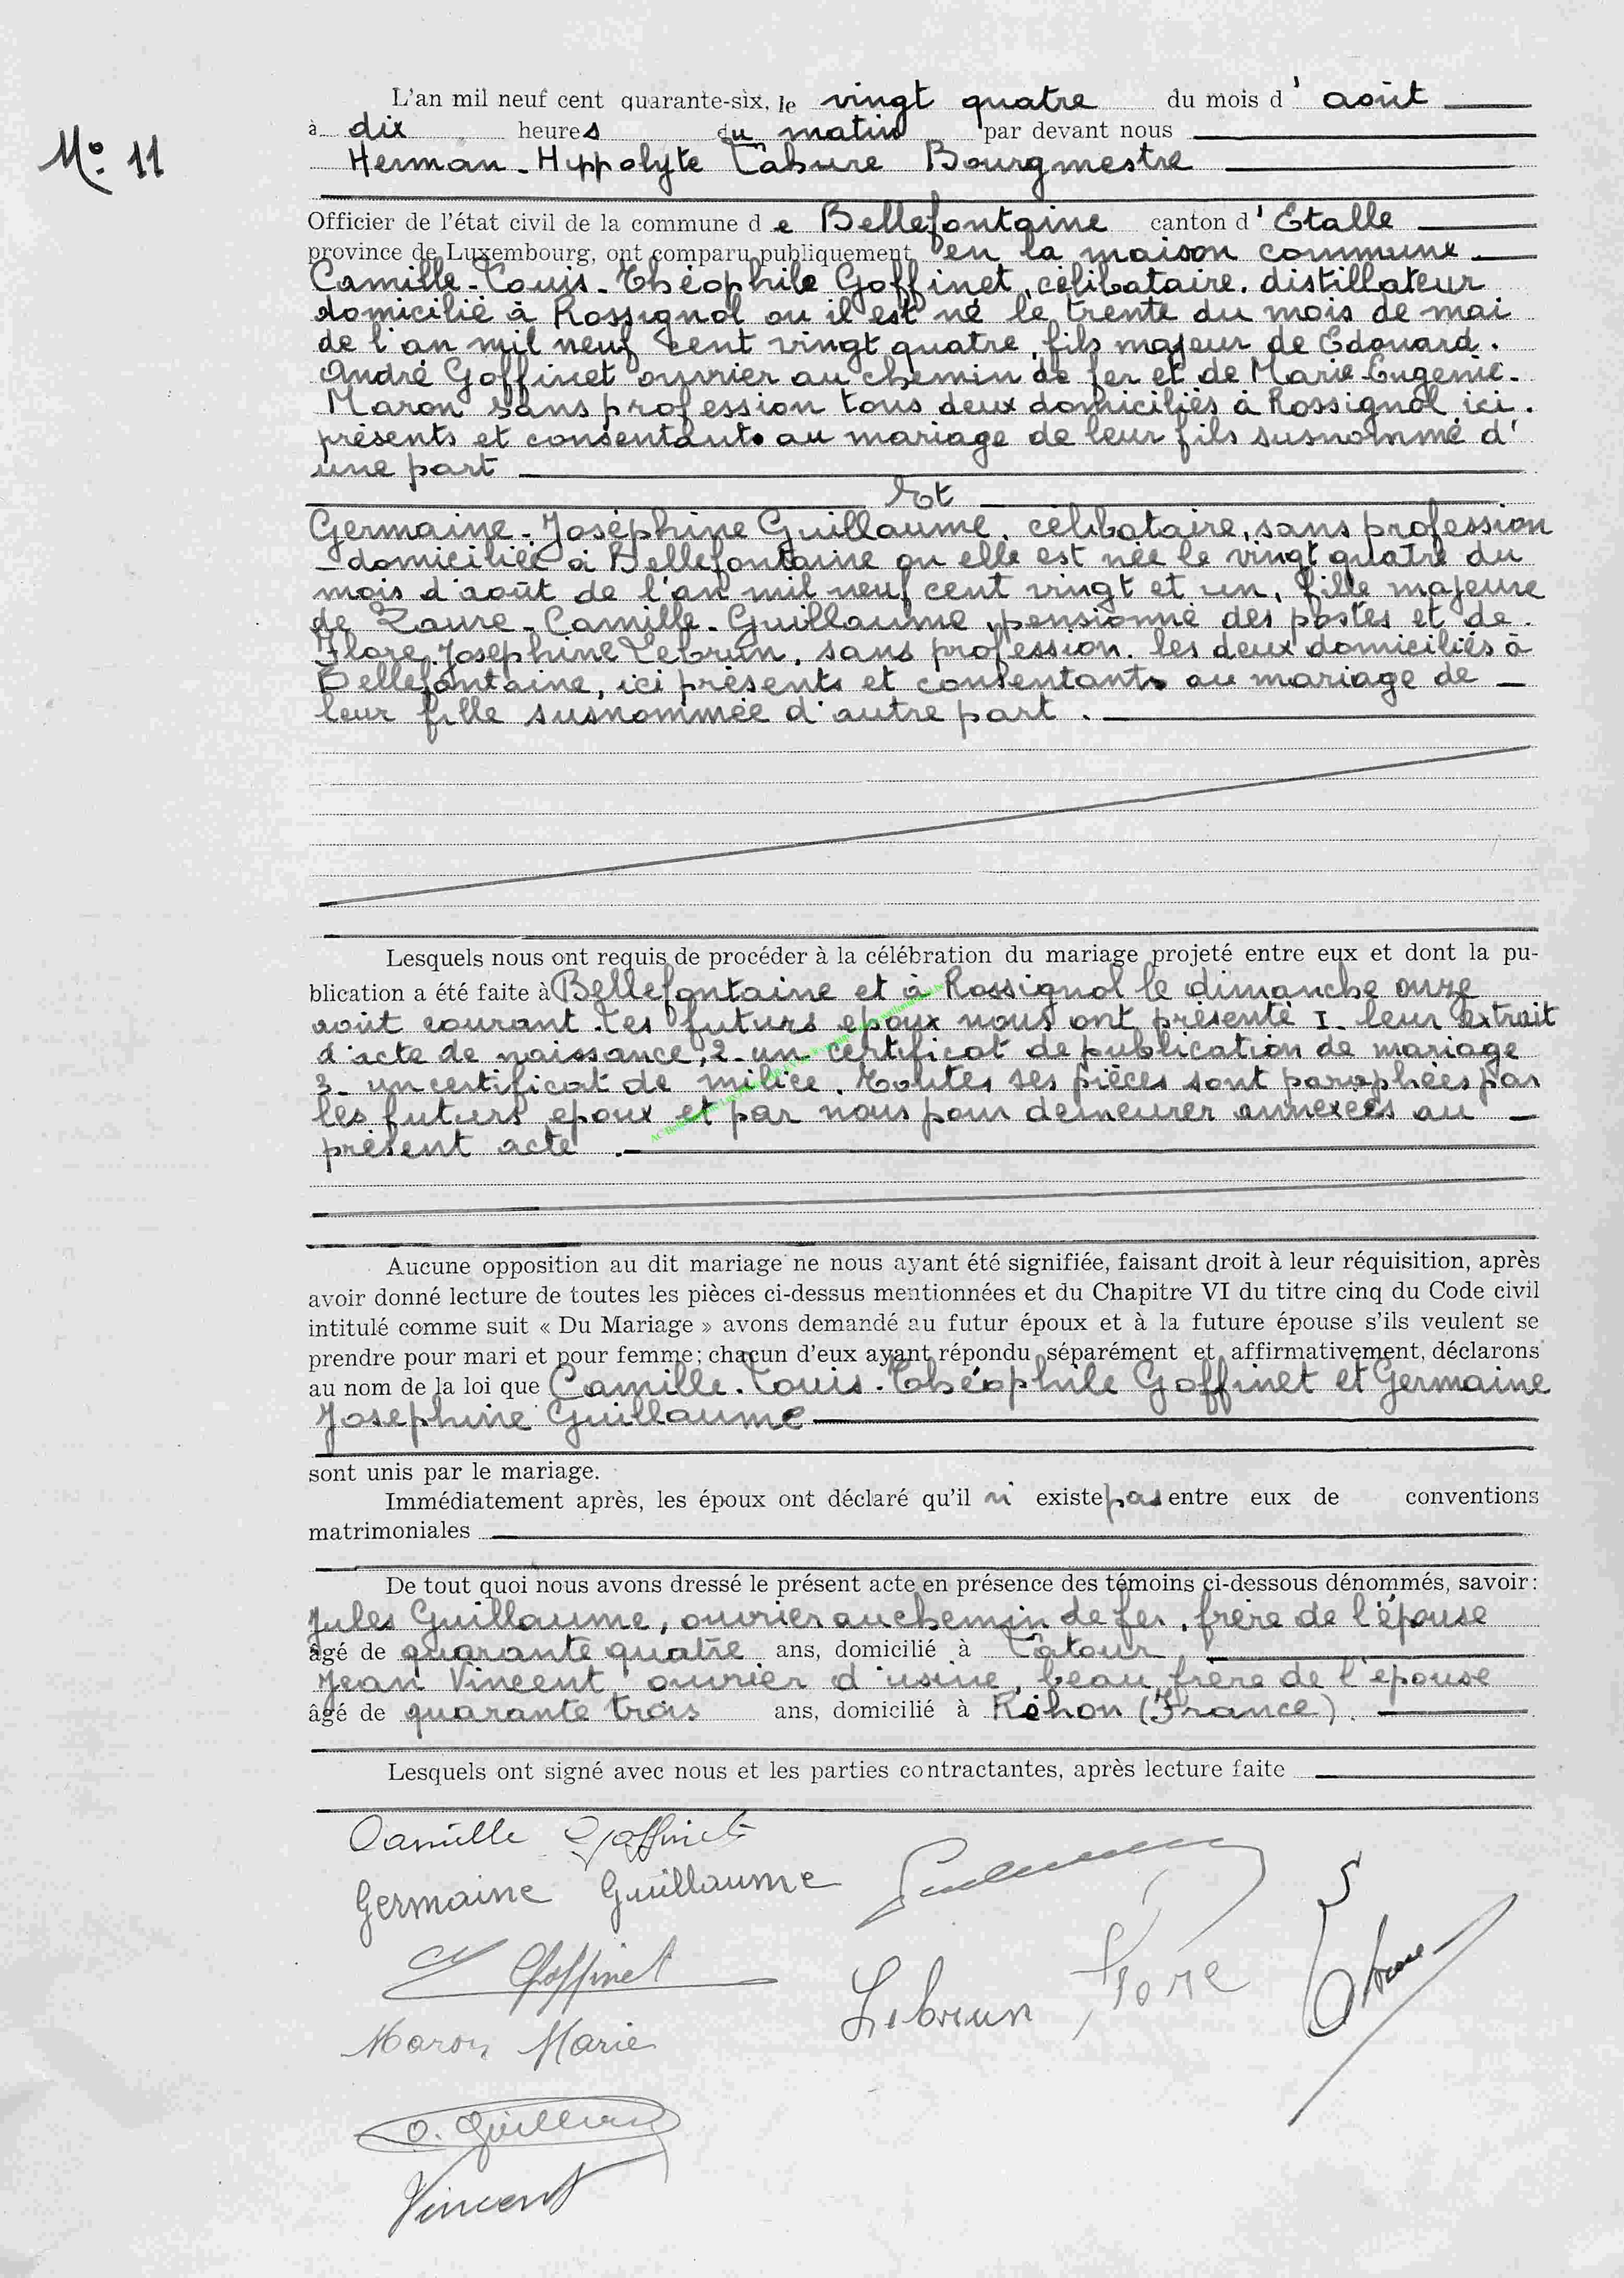 L'an mil neuf cent quarante-six, le vingt quatre du mois d' août
No. 11
à dix heures du matin par devant nous
Herman-Hippolyte Lahure Bourgmestre
Officier de l'état civil de la commune de Bellefontaine canton d' Etalle
province de Luxembourg, ont comparu publiquement en la maison commune
Camille-Louis-Théophile Goffinet, célibataire, distillateur
domicilié à Rossignol ou il est né le trente du mois de mai
de l'an mil neuf cent vingt quatre, fils majeur de Edouard.
André Goffinet ouvrier au chemin de fer et de Marie-Eugenie-
Maron sans profession tous deux domiciliés à Rossignol ici.
présents et consentants au mariage de leur fils susnommé d'
une part
Et
Germaine-Joséphine Guillaume, célibataire, sans profession
domiciliée à Bellefontaine ou elle est née le vingt quatre du
mois d'août de l'an mil neuf cent vingt et un, fille majeure
de Laure-Camille-Guillaume, pensionné des postes et de.
Flore Josephine Lebrun, sans profession. les deux domiciliés à
Bellefontaine, ici présents et consentants au mariage de
leur fille susnommée d'autre part.
Lesquels nous ont requis de procéder à la célébration du mariage projeté entre eux et dont la pu-
blication a été faite à Bellefontaine et à Rossignol le dimanche onze
août courant. Les futurs epoux nous ont présenté I- leur extrait
d'acte de naissance, 2- un certificat de publication de mariage
3- un certificat de milice. Toutes ses pièces sont paraphées par
les futurs epoux et par nous pour demeurer annexées au
présent acte.
Aucune opposition au dit mariage ne nous ayant été signifiée, faisant droit à leur réquisition, après
avoir donné lecture de toutes les pièces ci-dessus mentionnées et du Chapitre VI du titre cinq du Code civil
intitulé comme suit « Du Mariage » avons demandé au futur époux et à la future épouse s'ils veulent se
prendre pour mari et pour femme; chacun d'eux ayant répondu séparément et affirmativement, déclarons
au nom de la loi que Camille-Louis-Théophile Goffinet et Germaine
Josephine Guillaume
sont unis par le mariage.
Immédiatement après, les époux ont déclaré qu'il ni existe pas entre eux de conventions
matrimoniales
De tout quoi nous avons dressé le présent acte en présence des témoins ci-dessous dénommés, savoir:
Jules Guillaume, ouvrier au chemin de fer, frère de l'épouse
âgé de quarante quatre ans, domicilié à Latour
Jean Vincent ouvrier d'usine, beau frère de l'epouse
âgé de quarante trois ans, domicilié à Réhon (France).
Lesquels ont signé avec nous et les parties contractantes, après lecture faite
Camille Goffinet
Germaine Guillaume
Goffinet
Lebrun Flore
Maron Marie
Vincent